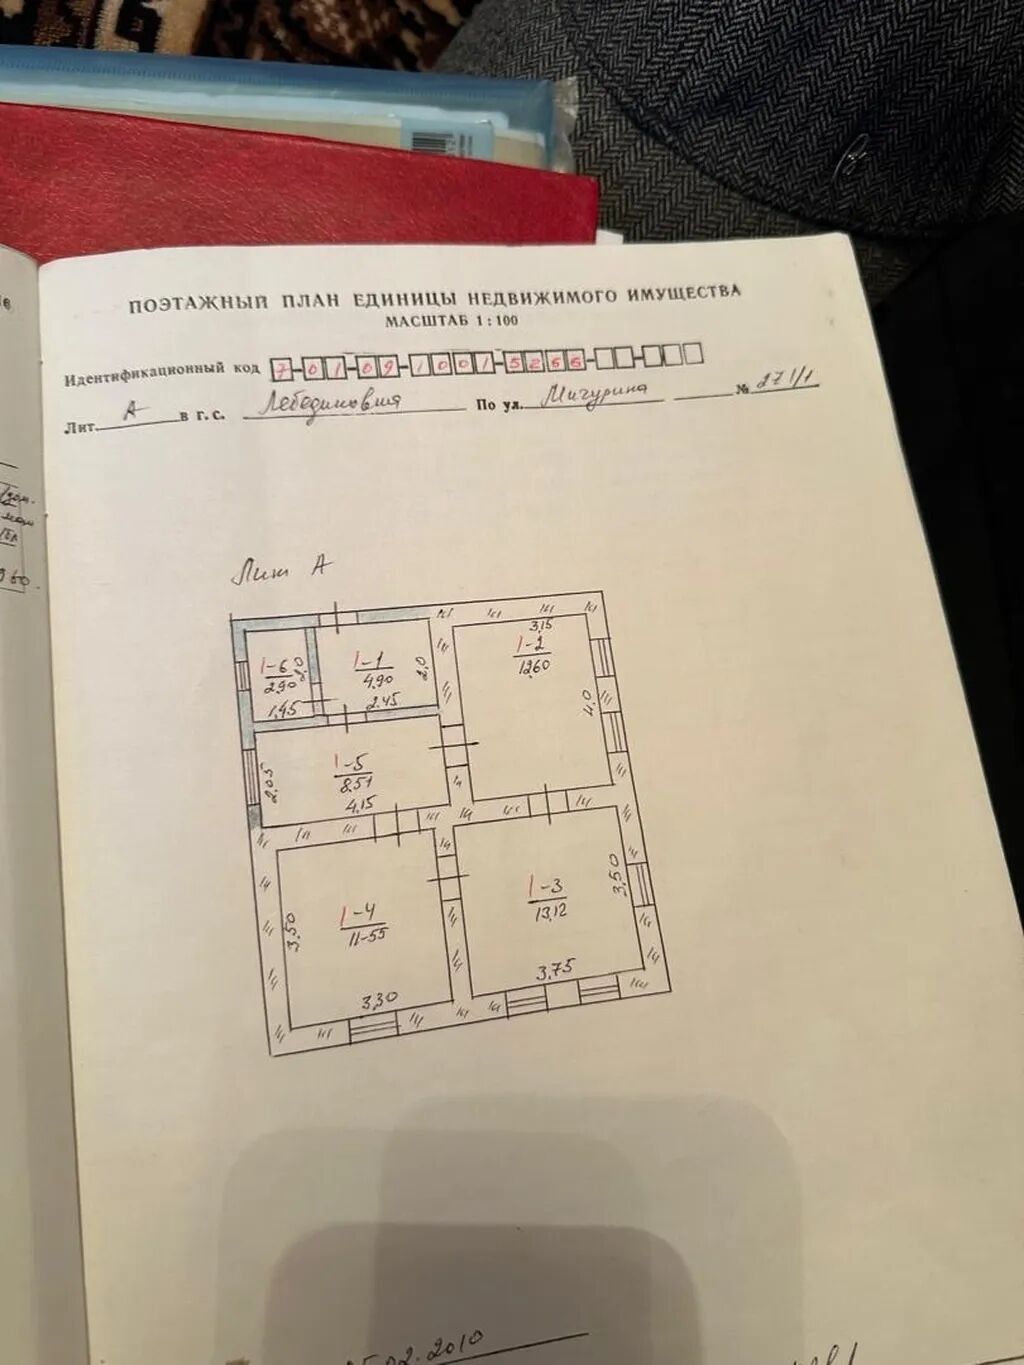 ПОЭТАЖНЫЙ ПЛАН ЕДИНИЦЫ НЕДВИЖИМОГО ИМУЩЕСТВА
МАСШТАБ 1 : 100
Идентификационный код 7-01-09-1001-5266-
Лит. А в г. с. Лебединовка По ул. Мичурина № 271/1
Лит А
1-6
2,90
2,0
1,45
1-1
4,90
2,0
2.45
3,15
1-2
12,60
4,0
1-5
8,51
2,05
4,15
1-4
11-55
3,50
3,30
1-3
13,12
3,50
3,75
02.2010